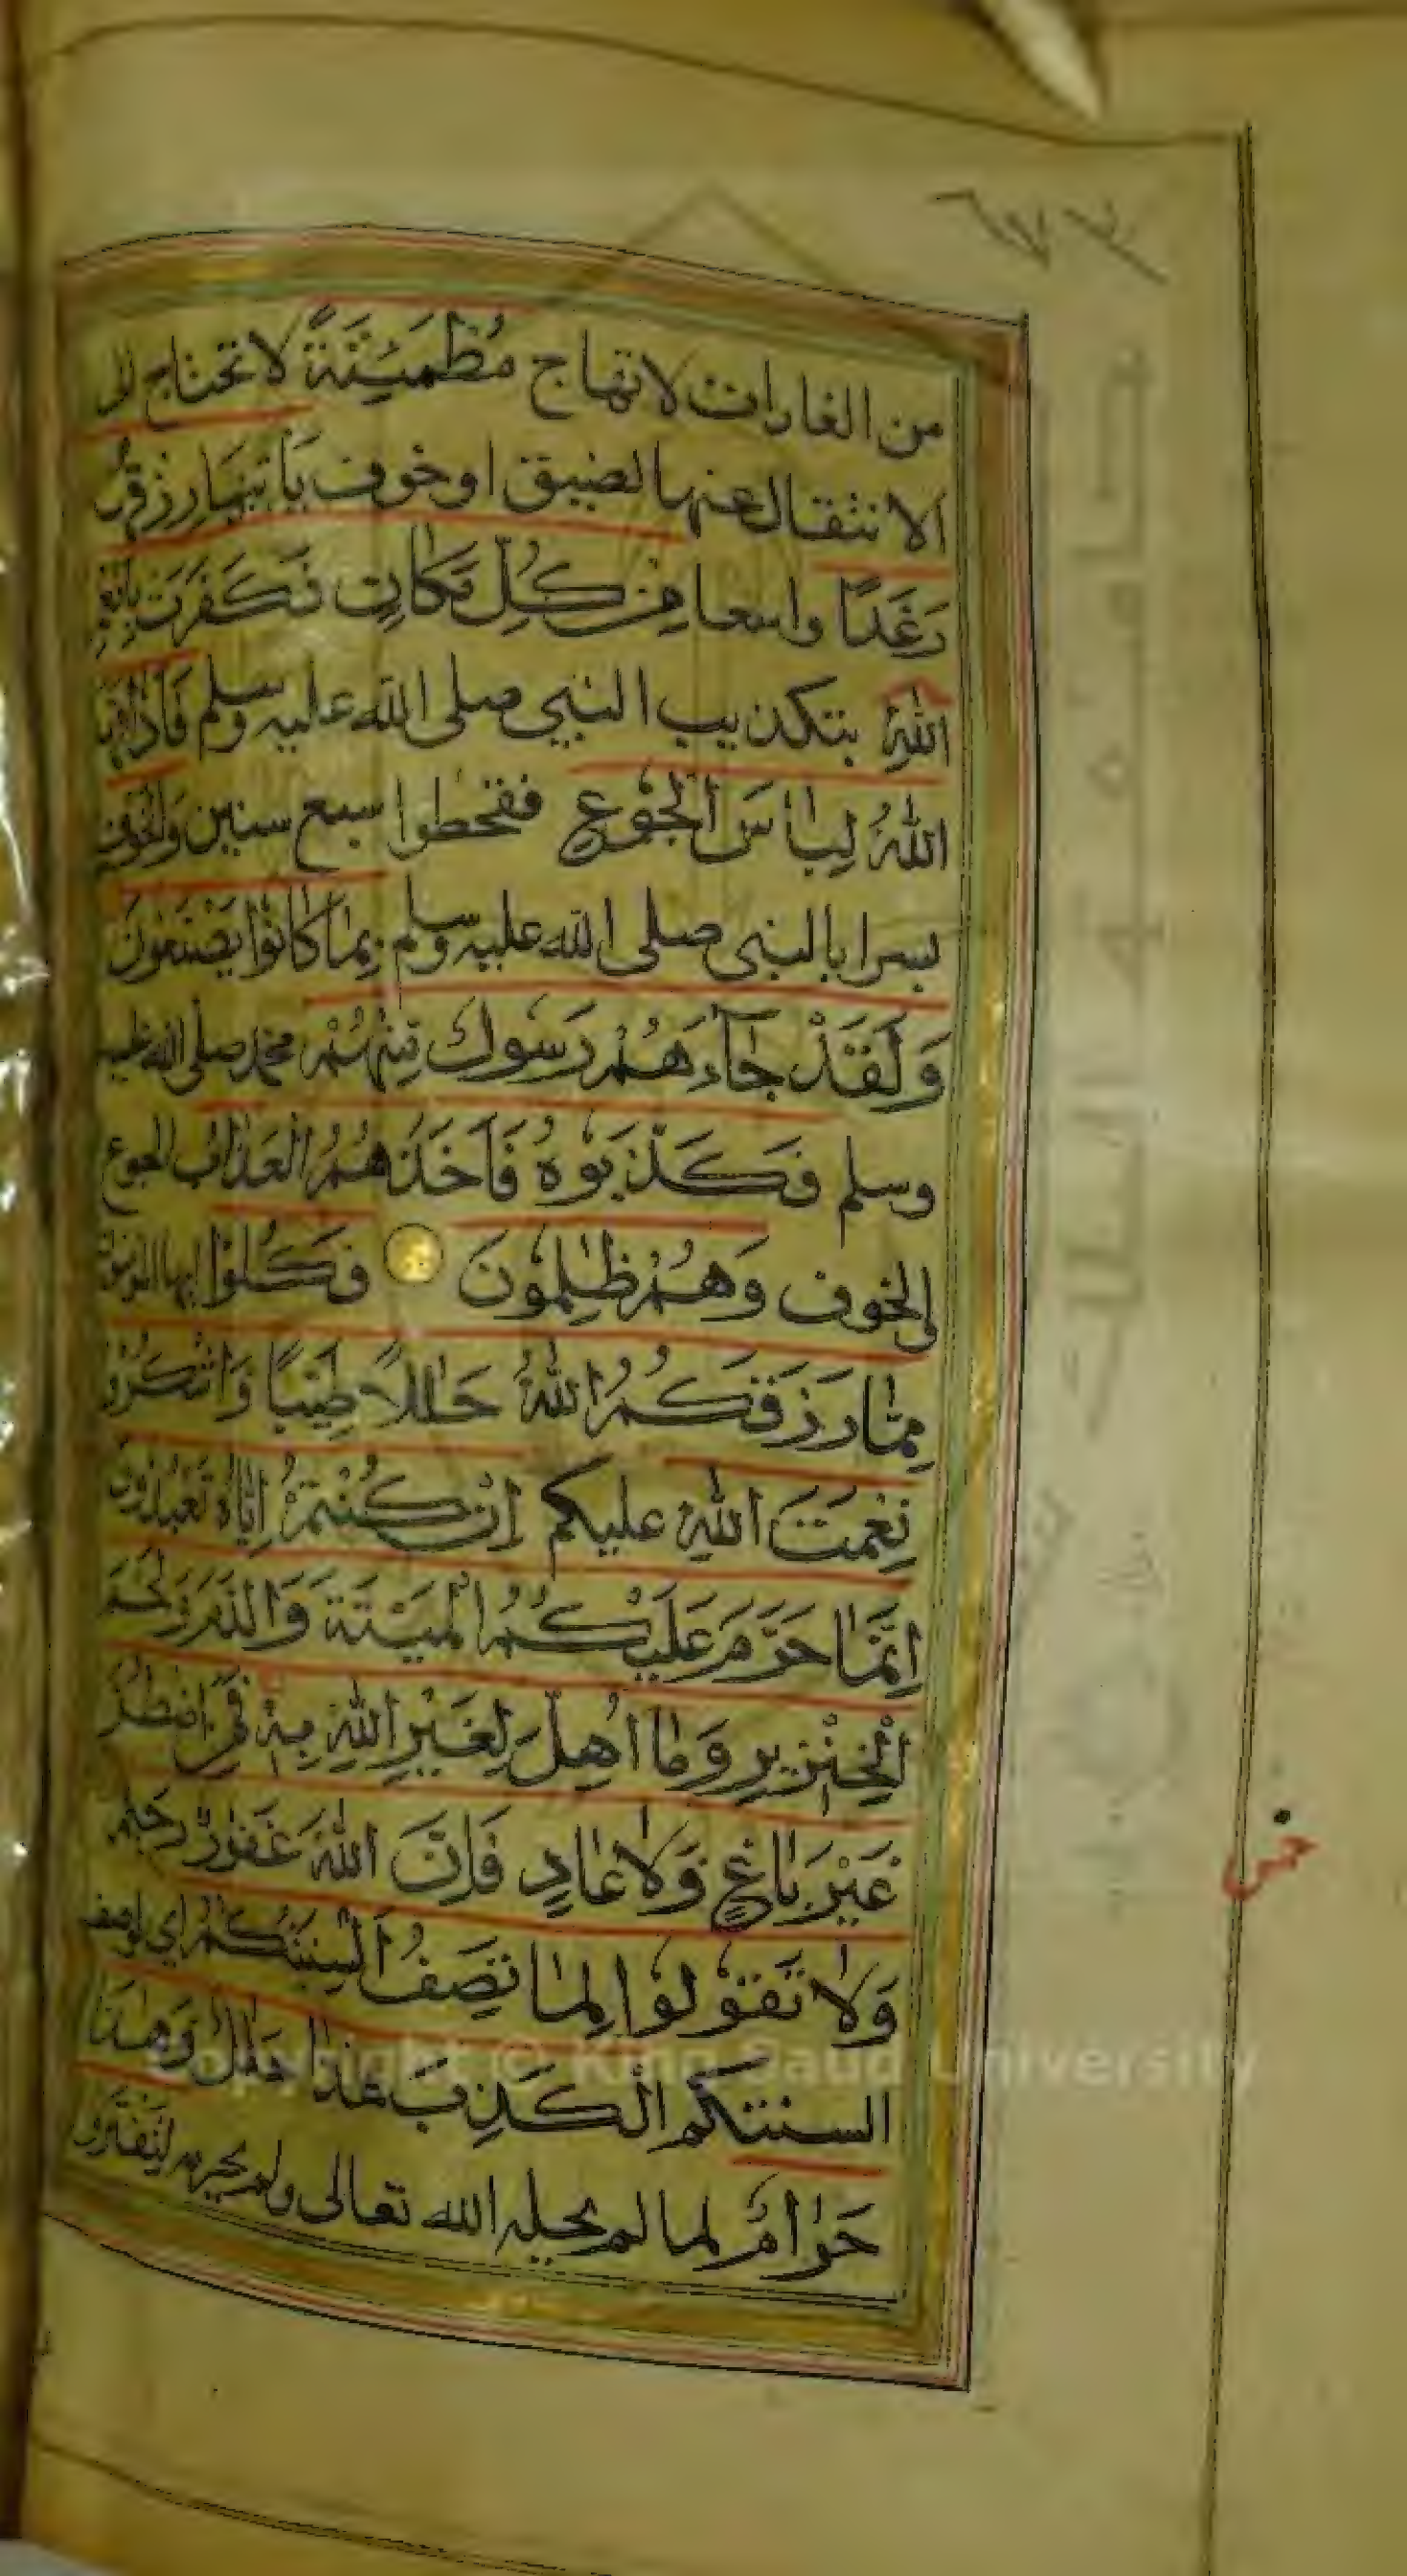 ٦٧٣
من الغارات لاتهاج مُطْمَئِنَّةً لا تحتاج الى
الانتقال عنها لضيق او خوف يَأْتِيْهَا رِزْقُهَا
رَغَدًا واسعا مِنْ كُلِّ مَكَانٍ فَكَفَرَتْ بِاَنْعُمِ
اللّٰهِ بتكذيب النبي صلى الله عليه وسلم فَاَذَاقَهَا
اللّٰهُ لِبَاسَ الْجُوْعِ فقحطوا سبع سنين وَالْخَوْفِ
بسرايا النبي صلى الله عليه وسلم بِمَا كَانُوْا يَصْنَعُوْنَ
وَلَقَدْ جَآءَهُمْ رَسُوْلٌ مِّنْهُمْ محمد صلى الله عليه
وسلم فَكَذَّبُوْهُ فَاَخَذَهُمُ الْعَذَابُ الجوع
والخوف وَهُمْ ظٰلِمُوْنَ فَكُلُوْا ايها المؤمنون
مِمَّا رَزَقَكُمُ اللّٰهُ حَلٰلًا طَيِّبًا وَّاشْكُرُوْا
نِعْمَتَ اللّٰهِ عليكم اِنْ كُنْتُمْ اِيَّاهُ تَعْبُدُوْنَ
اِنَّمَا حَرَّمَ عَلَيْكُمُ الْمَيْتَةَ وَالدَّمَ وَلَحْمَ
الْخِنْزِيْرِ وَمَا اُهِلَّ لِغَيْرِ اللّٰهِ بِهٖ فَمَنِ اضْطُرَّ
غَيْرَ بَاغٍ وَّلَا عَادٍ فَاِنَّ اللّٰهَ غَفُوْرٌ رَّحِيْمٌ
وَلَا تَقُوْلُوْا لِمَا تَصِفُ اَلْسِنَتُكُمُ اي لوصف
السنتكم الْكَذِبَ هٰذَا حَلٰلٌ وَّهٰذَا
حَرَامٌ لما لم يحله الله تعالى ولم يحرمه لِتَفْتَرُوْا
Copyright © King Saud University